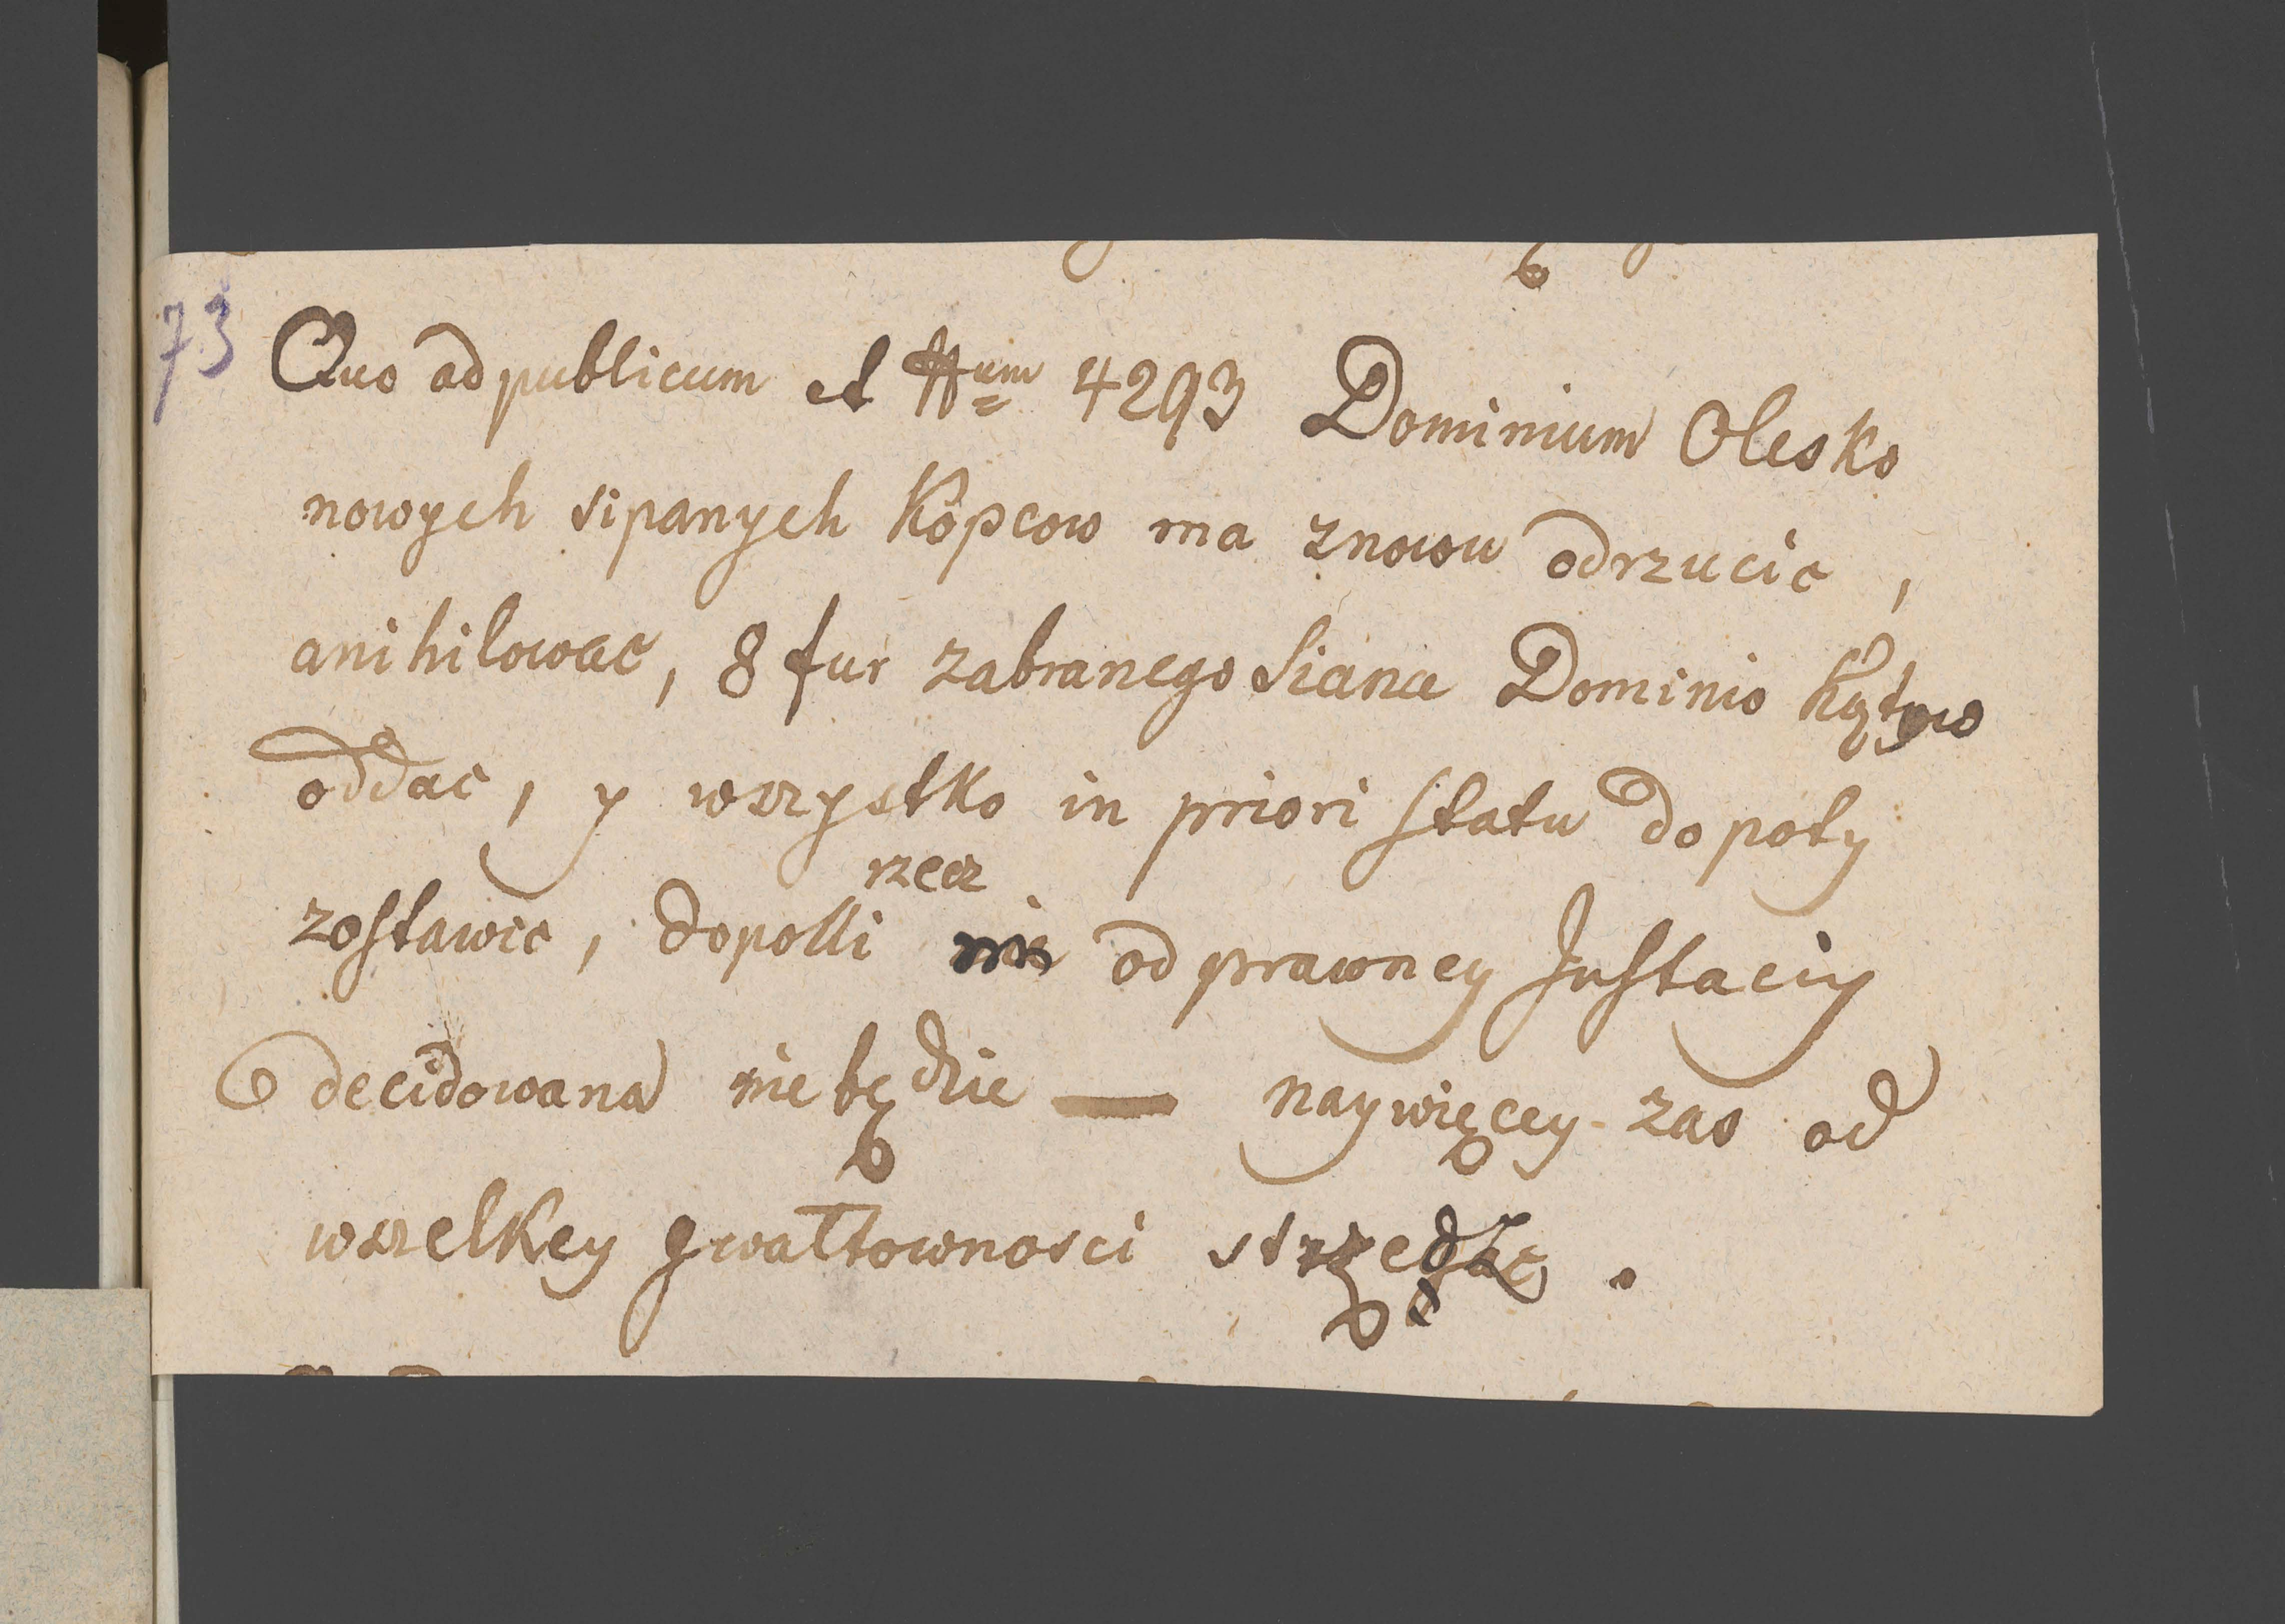 73
Quo ad publicum et Num 4293 Dominium Olesko
nowych sipanych Kopcow ma znowu odrzucic,
anihilowac, 8 fur zabranego Siana Dominio
oddac, y wszystko in priori statu dopoty
zostawic, dopotti rzecz od prawney Justaciy
decidowana nie będzie — naywięcey zas od
wszelkey gwałtownosci